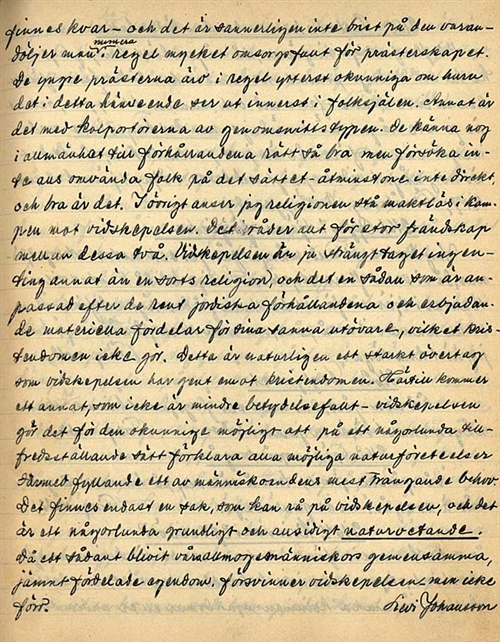 finnes kvar – och det är sannerligen inte brist på den varan –
döljer man numera i regel mycket omsorgsfullt för prästerskapet.
De yngre prästerna äro i regel ytterst okunniga om huru
det i detta hänseende ser ut innerst i folksjälen. Annat är
det med kolportörerna av genomsnittstypen. De känna nog
i allmänhet till förhållandena rätt så bra men försöka in-
te alls omvända folk på det sättet – åtminstone inte direkt,
och bra är det. I övrigt anser jag religionen stå maktlös i kam-
pen mot vidskepelsen. Det råder allt för stor frändskap
mellan dessa två. Vidskepelsen är ju strängt taget ingen-
ting annat än en sorts religion, och det en sådan som är an-
passad efter de rent jordiska förhållandena och erbjudan-
de materiella fördelar för sina sanna utövare, vilket kris-
tendomen icke gör. Detta är naturligen ett starkt övertag
som vidskepelsen har gent emot kristendomen. Härtill kommer
ett annat, som icke är mindre betydelsefullt – vidskepelsen
gör det för den okunnige möjligt att på ett någorlunda till-
fredsställande sätt förklara alla möjliga naturföreteelser
därmed fyllande ett av människoandens mest trängande behov.
Det finnes endast en sak, som kan rå på vidskepelsen, och det
är ett någorlunda grundligt och allsidigt naturvetande.
Då ett sådant blivit våra allmogemänniskors gemensamma,
jämnt fördelade egendom, försvinner vidskepelsen, men icke
förr.
Levi Johansson